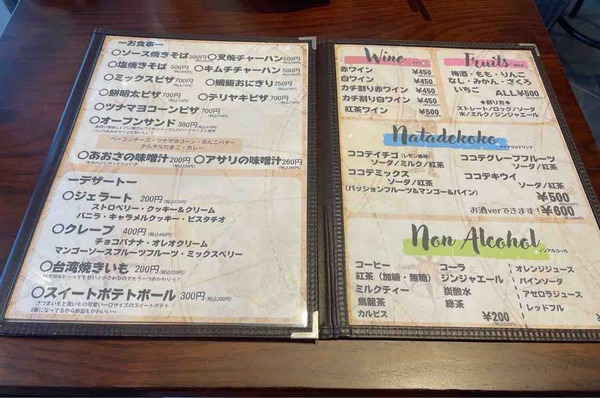 ーお食事ー
〇ソース焼きそば500円 〇叉焼チャーハン500円
〇塩焼きそば500円 〇キムチチャーハン500円
〇ミックスピザ700円 〇鯛飯おにぎり250円
〇餅明太ピザ700円 〇テリヤキピザ700円
〇ツナマヨコーンピザ700円
〇オープンサンド 380円
ベーコンチーズ・ツナマヨコーン・あんこバター
タルタルたまご・カレー
〇あおさの味噌汁200円 〇アサリの味噌汁260円
ーデザートー
〇ジェラート 200円
ストロベリー・クッキー&クリーム
バニラ・キャラメルクッキー・ピスタチオ
〇クレープ 400円
チョコバナナ・オレオクリーム
マンゴーソースフルーツフルーツ・ミックスベリー
〇台湾焼きいも 200円
〇スイートポテトボール 300円(税込330円)
Wine
赤ワイン ¥450
白ワイン ¥450
カチ割り赤ワイン ¥450
カチ割り白ワイン ¥450
紅茶ワイン ¥500
Fruits
梅酒・もも・りんご
なし・みかん・ざくろ
いちご ALL¥500
◆割り方◆
ストレート/ロック/ソーダ
水/ミルク/ジンジャエール
Natadekoko
ココテイチゴ(レモン風味)
ソーダ/ミルク/紅茶
ココテグレープフルーツ
ソーダ/紅茶
ココテミックス
ソーダ/紅茶
(パッションフルーツ&マンゴー&パイン)
ココテキウイ
ソーダ/紅茶
¥500
お酒verできます!¥600
Non Alcohol
ノンアルコール
コーヒー
紅茶(加糖・無糖)
ミルクティー
烏龍茶
カルピス
コーラ
ジンジャエール
炭酸水
緑茶
オレンジジュース
パインソーダ
アセロラジュース
レッドブル
¥200